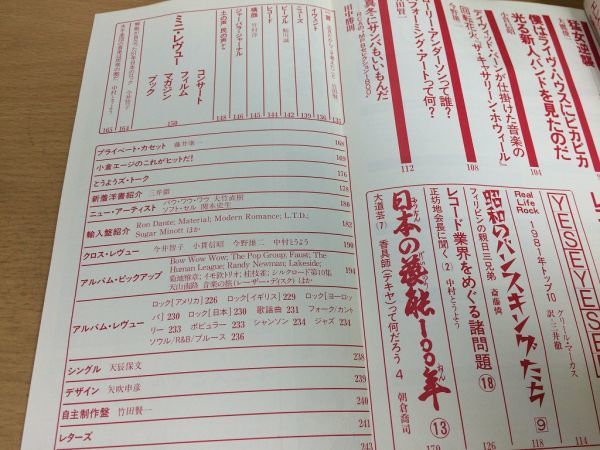 狂女逆襲
104
僕はライヴ・ハウスにピカピカ
光る新人バンドを見たのだ
小貫信昭
108
デイヴィッド・バーンが仕掛けた音楽の
回転花火「ザ・キャサリーン・ホウィール」
今野雄二
112
ローリー・アンダーソンって誰？
フォーミング・アートって何？
真冬にサンバもいいもんだ
RCAの、MPBセレクション1800！
田中勝則
YES EYE SEE
Real
Life
Rock
1981年トップ10
グリール・マーカス
訳・三井徹
114
昭和のバンスキングたち
9
フィリピンの親日三兄弟
斎藤憐
118
レコード業界をめぐる諸問題
18
正坊地会長に聞く（2）
中村とうよう
126
日本の藝能100年
13
大道芸（7）
香具師（テキヤ）って何だろう 4
朝倉喬司
170
イヴェント
136
ニュース
139
ピープル
140
レコード
142
横顔
144
ジャーナル・ジャーナル
145
土の声・民の声
146
148
ミニ・レヴュー
コンサート
フィルム
マガジン
ブック
150
164
165
プライベート・カセット 藤井康一 168
小倉エージのこれがヒットだ！ 169
とうようズ・トーク 176
新着洋書紹介 三井徹 178
ニュー・アーティスト バウ・ワウ・ワウ 大竹直樹
ソフト・セル 関本史生 180
輸入盤紹介 Ron Dante; Material; Modern Romance; L.T.D.;
Sugar Minott ほか 182
クロス・レヴュー 今井智子 小貫信昭 今野雄二 中村とうよう 190
アルバム・ピックアップ Bow Wow Wow; The Pop Group; Faust; The
Human League; Randy Newman; Lakeside;
菊地雅章; イモ欽トリオ; 桂枝雀; シルクロード第10集
天山南路 音楽の旅(レーザー・ディスク) ほか 194
アルバム・レヴュー ロック[アメリカ] 226 ロック[イギリス] 229 ロック[ヨーロッ
パ] 230 ロック[日本] 230 歌謡曲 231 フォーク/カント
リー 233 ポピュラー 233 シャンソン 234 ジャズ 234
ソウル/R&B/ブルース 236
シングル 天辰保文 238
デザイン 矢吹申彦 239
自主制作盤 竹田賢一 240
レターズ 241
243